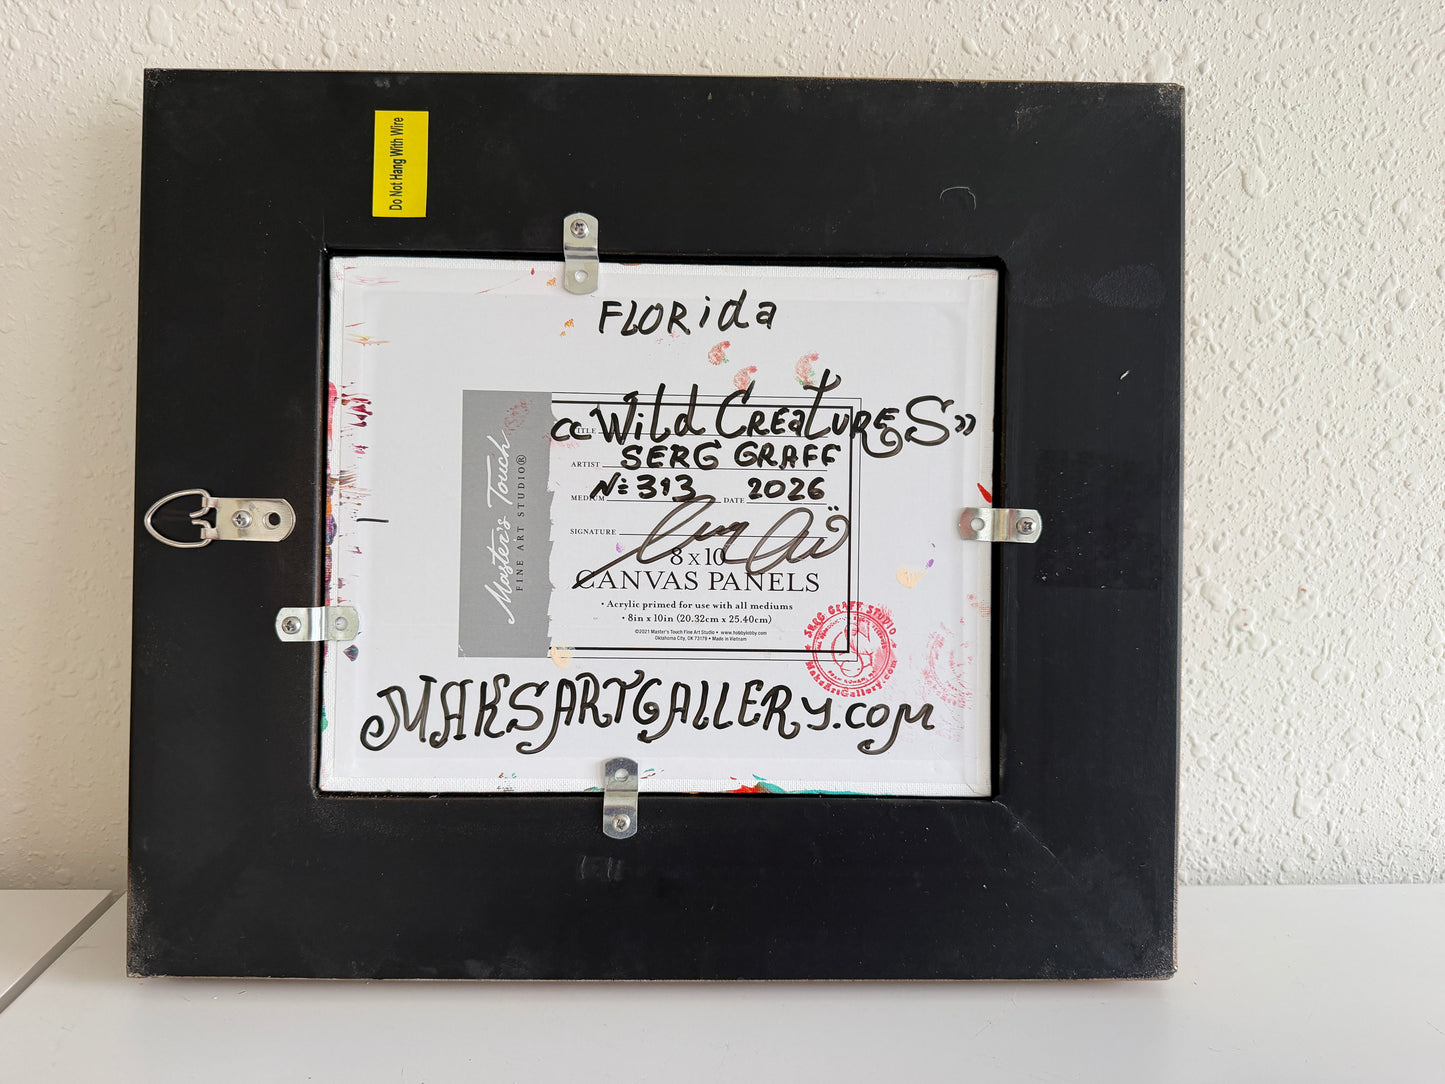 Do Not Hang With Wire
FLORida
«Wild CREaTURES»
TITLE
ARTIST SERG GRAFF
MEDIUM № 313 DATE 2026
SIGNATURE
Master's Touch®
FINE ART STUDIO
8 x 10
CANVAS PANELS
• Acrylic primed for use with all mediums
• 8in x 10in (20.32cm x 25.40cm)
©2021 Master's Touch Fine Art Studio • www.hobbylobby.com
Oklahoma City, OK 73179 • Made in Vietnam
SERG GRAFF STUDIO
MaksArtGallery.com
MAKSARTGALLERY.COM